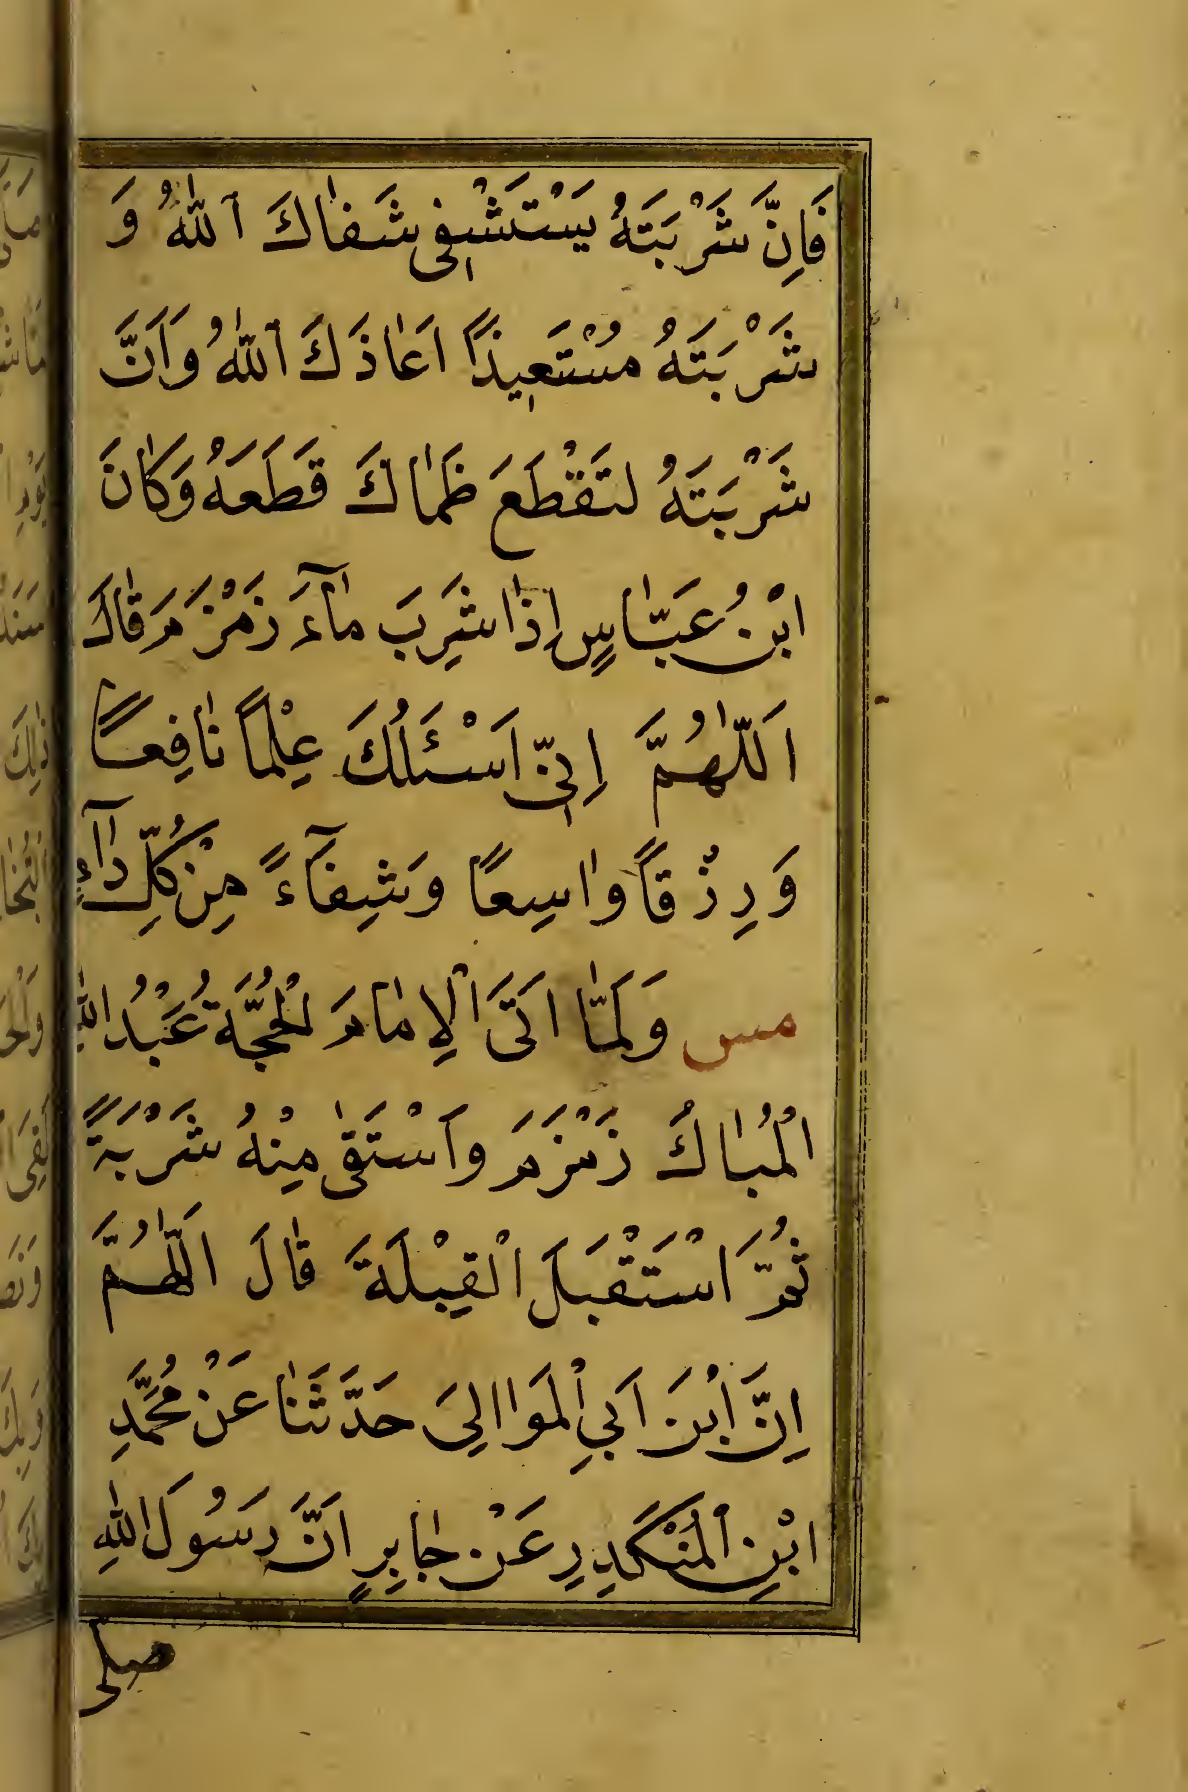 فَاِنَّ شَرْبَتَهُ يَسْتَشْفِى شَفٰاكَ اَللّٰهُ وَ
شَرْبَتَهُ مُسْتَعِيذًا اَعٰاذَكَ اَللّٰهُ وَاَنَّ
شَرْبَتَهُ لتَقْطَعَ ظَمٰاكَ قَطَعَهُ وَكٰانَ
ابْنُ عَبّٰاسٍ اِذٰا شَرِبَ مٰآءَ زَمْزَمَ قٰالَ
اَللّٰهُمَّ اِنّى اَسْئَلُكَ عِلْمًا نٰافِعًا
وَرِزْقاً وٰاسِعًا وَشِفٰآءً مِنْ كُلِّ دٰآءٍ
مس وَلَمّٰا اَتَى الْاِمٰامَ الْحُجَّةُ عَبْدُ اللّٰهِ
الْمُبٰاكُ زَمْزَمَ وَاَسْتَقٰى مِنْهُ شَرْبَةً
ثُمَّ اَسْتَقْبَلَ الْقِبْلَةَ قٰالَ اَللّٰهُمَّ
اِنَّ اَبْنَ اَبِي الْمَوَاالِىَ حَدَّثَنٰا عَنْ مُحَمَّدِ
ابْنِ الْمُنْكَدِرِ عَنْ جٰابِرٍ اَنَّ رَسُولَ اللّٰهِ
صلى